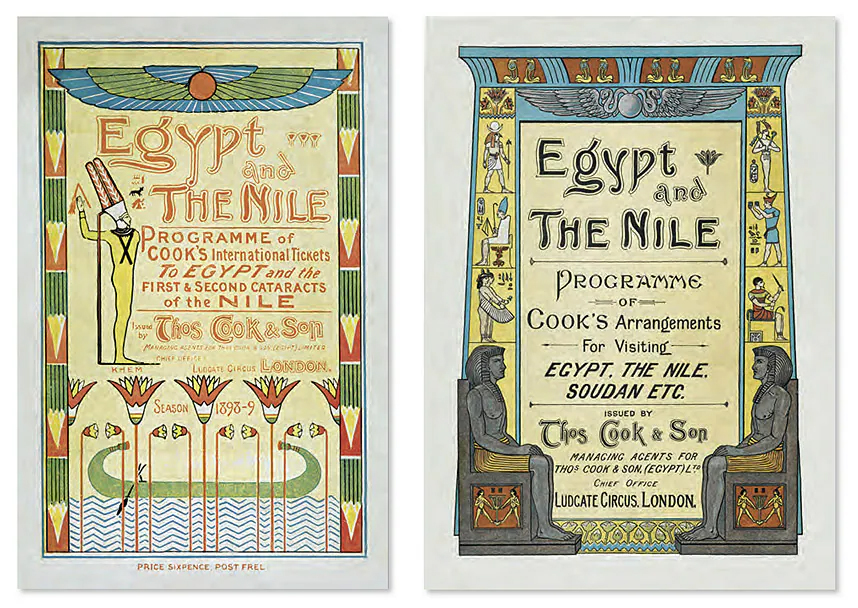 Egypt
and
THE NILE
PROGRAMME of
COOK'S International Tickets
To EGYPT and the
FIRST & SECOND CATARACTS
of the NILE
Issued
by
Thos Cook & Son
MANAGING AGENTS FOR THOS COOK & SON (EGYPT) LIMITED
CHIEF OFFICE
LUDGATE CIRCUS LONDON.
KHEM
SEASON 1898-9
PRICE SIXPENCE, POST FREE
Egypt
and
THE NILE
PROGRAMME
OF
COOK'S Arrangements
For Visiting
EGYPT, THE NILE,
SOUDAN ETC.
ISSUED BY
Thos Cook & Son
MANAGING AGENTS FOR
THOS COOK & SON, (EGYPT) LTD
CHIEF OFFICE
LUDGATE CIRCUS, LONDON.